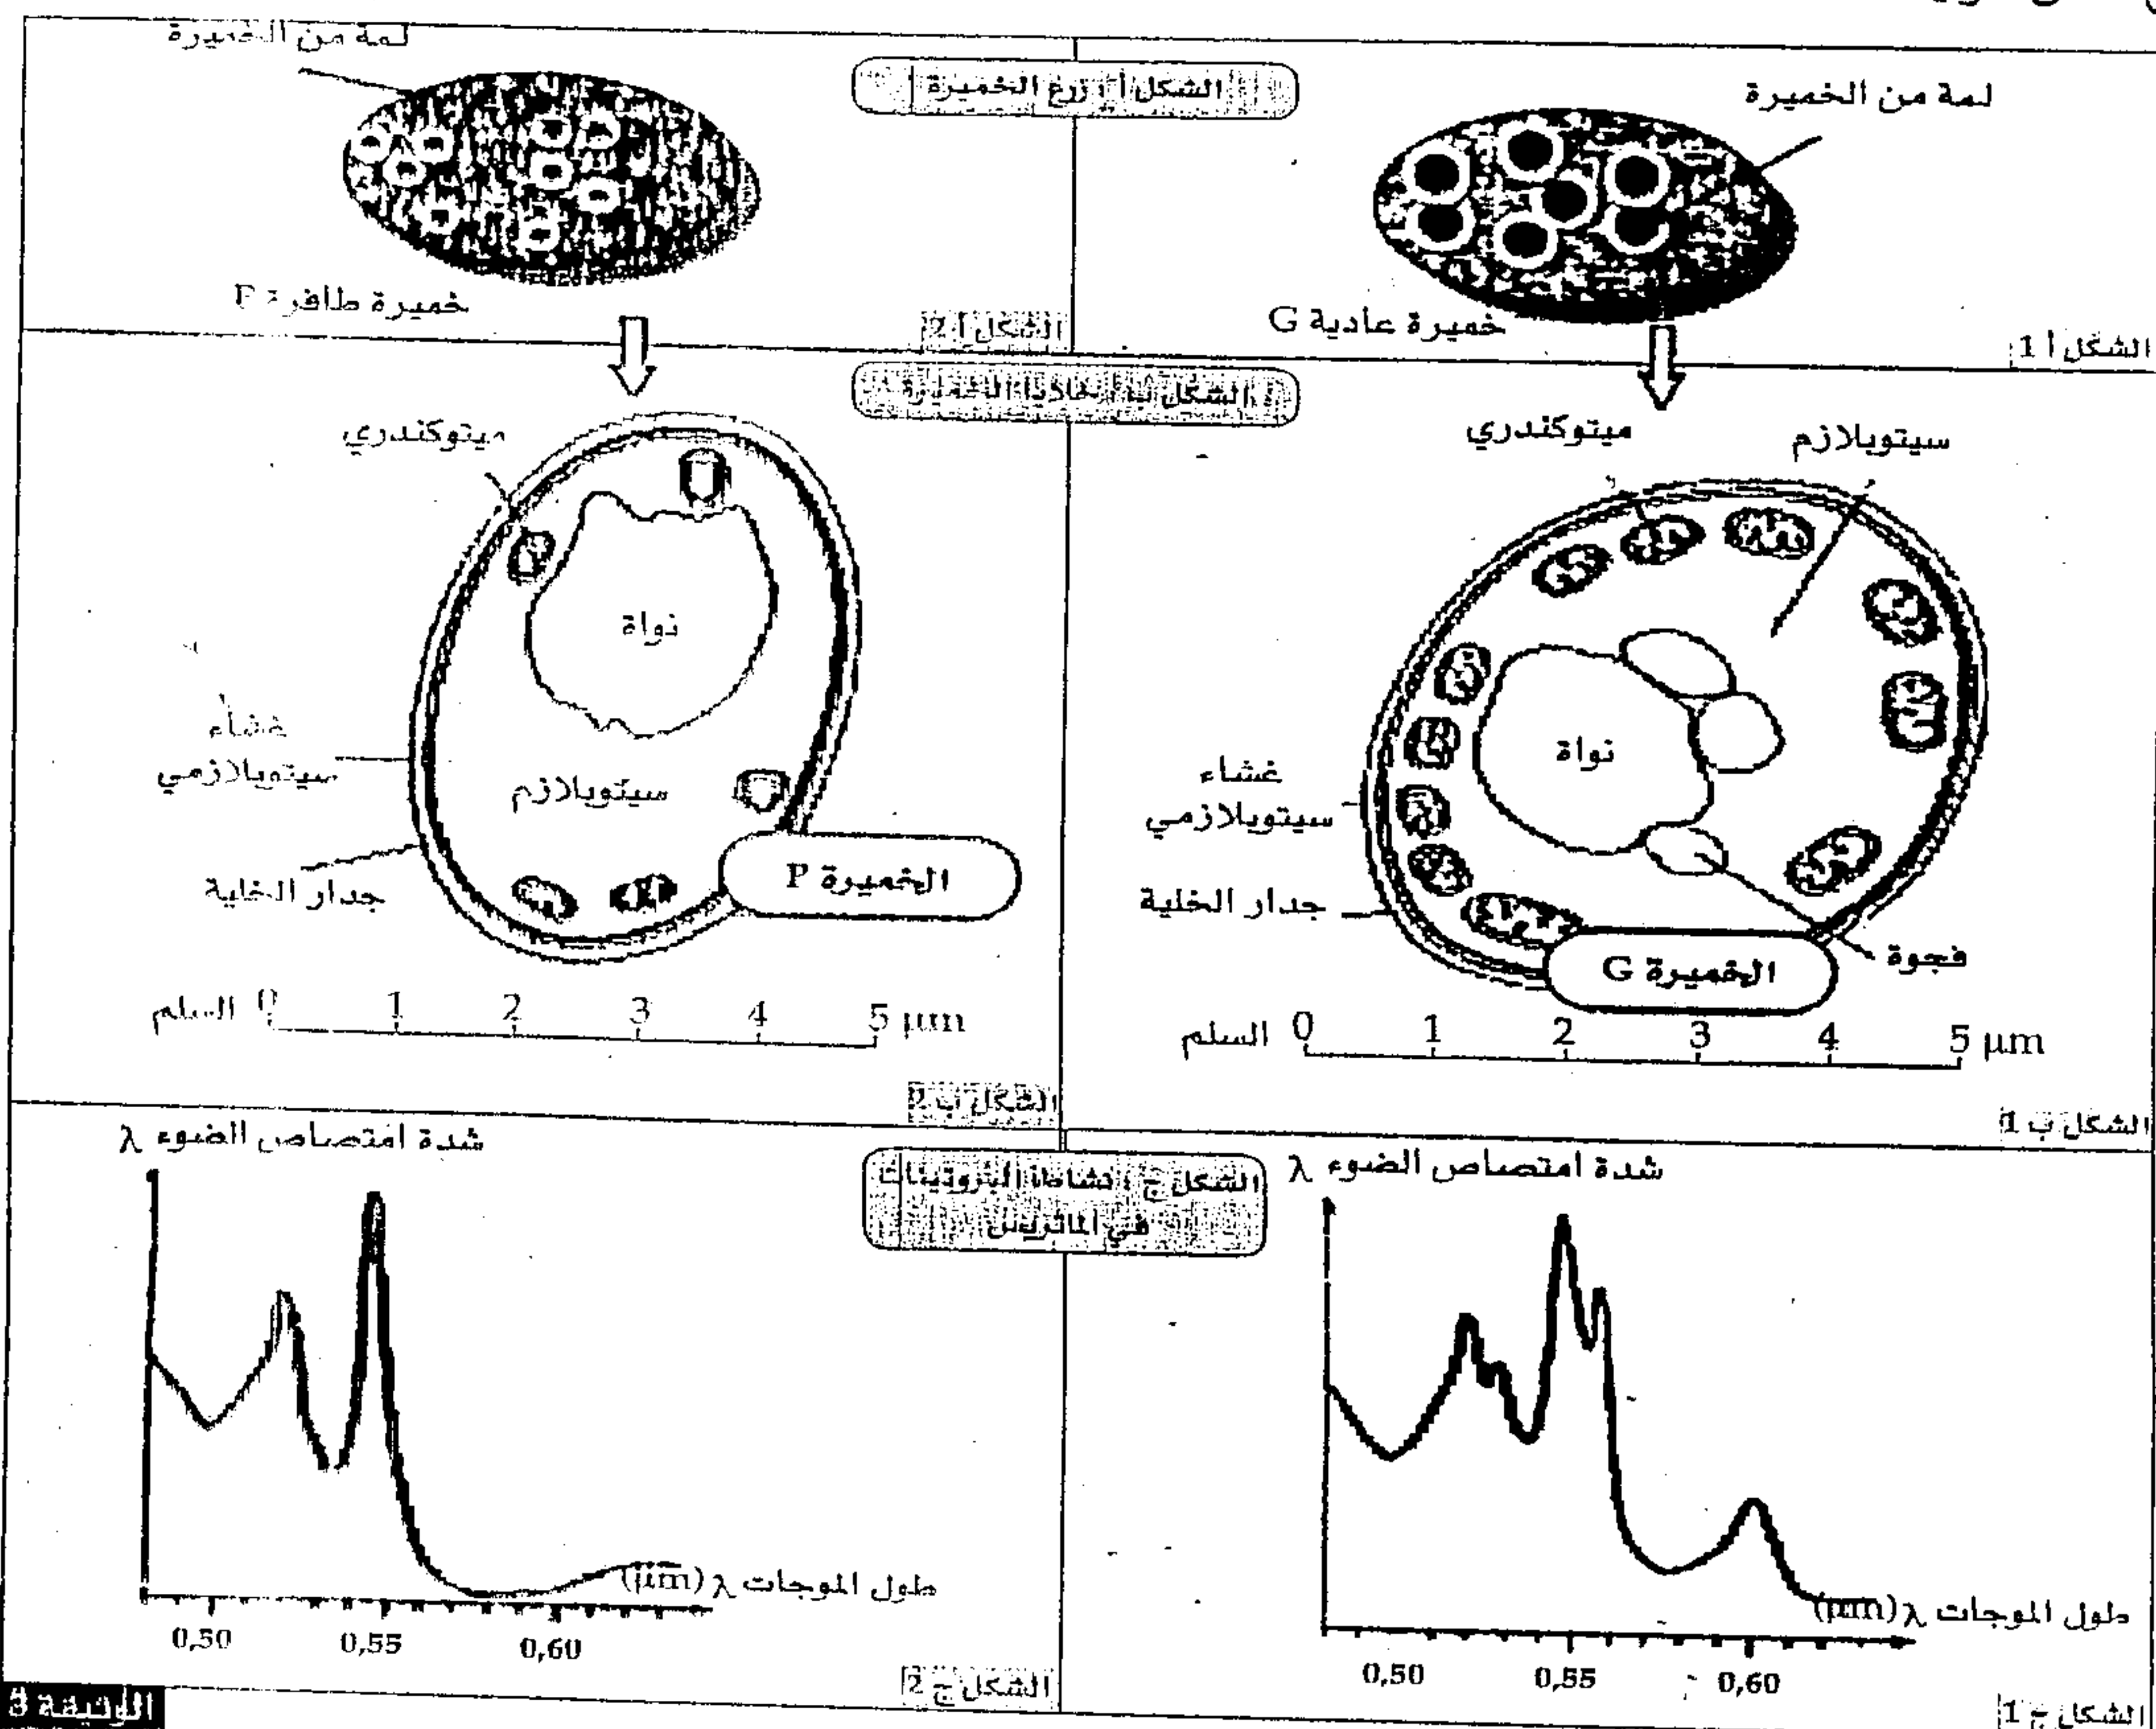 الشكل أ : زرع الخميرة
لمة من الخميرة
خميرة عادية G
الشكل أ 1
لمة من الخميرة
خميرة طافرة P
الشكل أ 2
الشكل ب : خلايا الخميرة
ميتوكندري
سيتوبلازم
نواة
غشاء
سيتوبلازمي
جدار الخلية
فجوة
الخميرة G
السلم 0 1 2 3 4 5 µm
الشكل ب 1
ميتوكندري
نواة
غشاء
سيتوبلازمي
سيتوبلازم
جدار الخلية
الخميرة P
السلم 0 1 2 3 4 5 µm
الشكل ب 2
الشكل ج : نشاط البروتينات
في الماتريس
شدة امتصاص الضوء λ
طول الموجات λ (µm)
0,50 0,55 0,60
الشكل ج 1
شدة امتصاص الضوء λ
طول الموجات λ (µm)
0,50 0,55 0,60
الشكل ج 2
الوثيقة 3